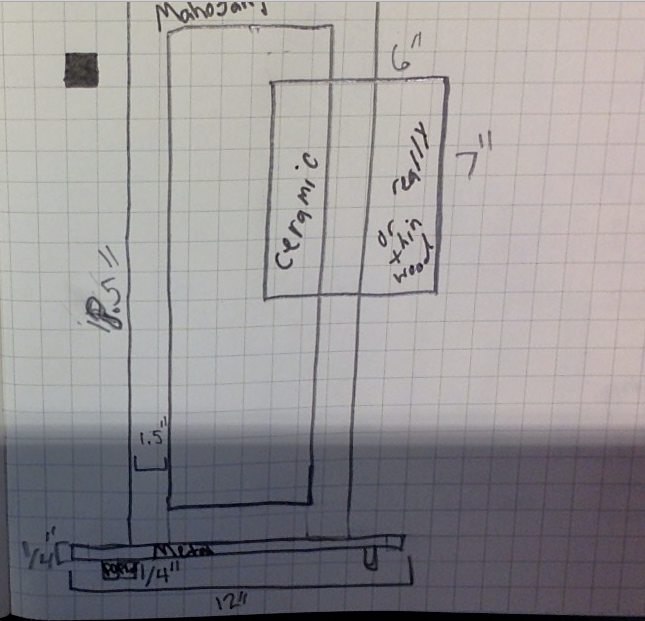 Mahogany
6"
7"
ceramic
or really
thin
wood
18.5"
1.5"
1/4"
Metal
1/4"
12"